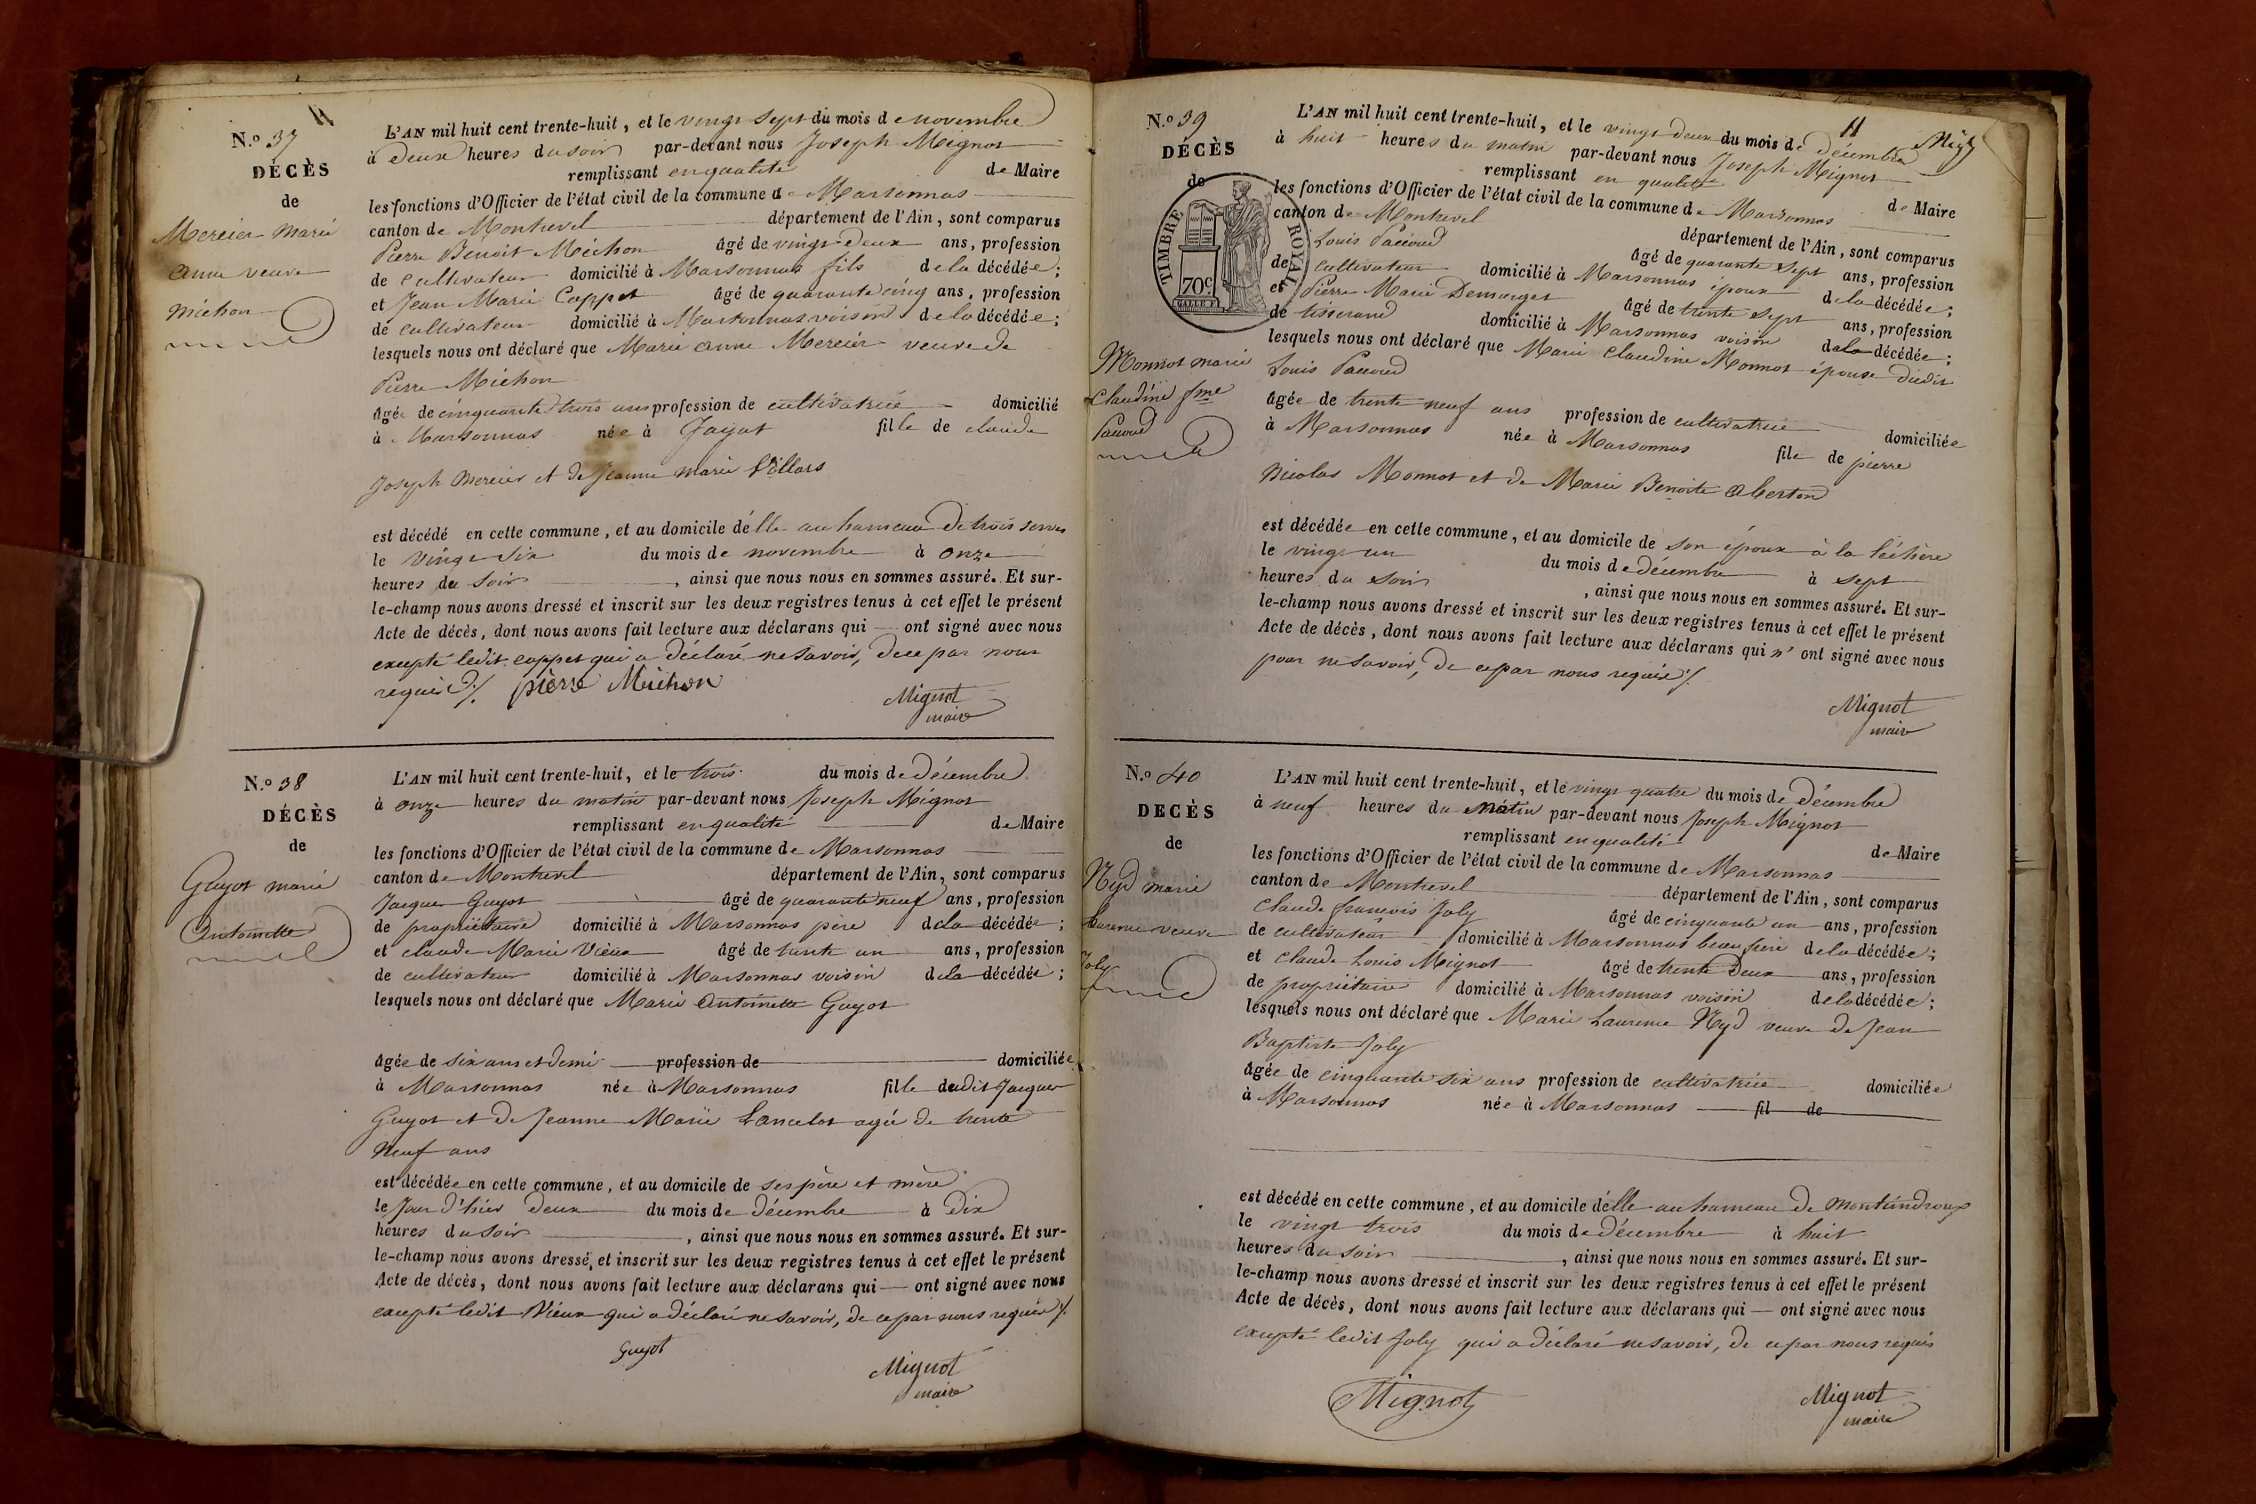 N.º 37
DÉCÈS
de
Mercier Marie
Anne veuve
Michon
L'AN mil huit cent trente-huit, et le vingt sept du mois de novembre
à deux heures du soir par-devant nous Joseph Mignot
remplissant en qualité de Maire
les fonctions d'Officier de l'état civil de la commune de Marsonnas
canton de Montrevel département de l'Ain, sont comparus
Pierre Benoit Michon âgé de vingt deux ans, profession
de cultivateur domicilié à Marsonnas fils de la décédée;
et Jean Marie Coppet âgé de quarante cinq ans, profession
de cultivateur domicilié à Marsonnas voisin de la décédée;
lesquels nous ont déclaré que Marie Anne Mercier veuve de
Pierre Michon
âgée de cinquante trois ans profession de cultivatrice domicilié
à Marsonnas née à Jayat fille de claude
Joseph Mercier et de Jeanne Marie Villars
est décédé en cette commune, et au domicile d'élle au hameau de trois serves
le vingt six du mois de novembre à onze
heures du soir, ainsi que nous nous en sommes assuré. Et sur-
le-champ nous avons dressé et inscrit sur les deux registres tenus à cet effet le présent
Acte de décès, dont nous avons fait lecture aux déclarans qui ont signé avec nous
excepté ledit Coppet qui a déclaré ne savoir, de ce par nous
requis ./. pierre Michon
Mignot
maire
N.º 38
DÉCÈS
de
Guyot marie
Antoinette
L'AN mil huit cent trente-huit, et le trois du mois de décembre
à onze heures du matin par-devant nous Joseph Mignot
remplissant en qualité de Maire
les fonctions d'Officier de l'état civil de la commune de Marsonnas
canton de Montrevel département de l'Ain, sont comparus
Jacques Guyot âgé de quarante neuf ans, profession
de propriétaire domicilié à Marsonnas père de la décédée;
et claude Marie Vieux âgé de trente un ans, profession
de cultivateur domicilié à Marsonnas voisin de la décédée;
lesquels nous ont déclaré que Marie Antoinette Guyot
âgée de six ans et demi profession de domiciliée
à Marsonnas née à Marsonnas fille dudit Jacques
Guyot et de Jeanne Marie Lancelot agée de trente
neuf ans
est décédée en cette commune, et au domicile de ses père et mère
le jour d'hier deux du mois de décembre à dix
heures du soir, ainsi que nous nous en sommes assuré. Et sur-
le-champ nous avons dressé et inscrit sur les deux registres tenus à cet effet le présent
Acte de décès, dont nous avons fait lecture aux déclarans qui ont signé avec nous
excepté ledit Vieux qui a déclaré ne savoir, de ce par nous requis ./.
Guyot
Mignot
maire
11
N.º 39
DÉCÈS
de
TIMBRE ROYAL
70c
Monnot marie
Claudine fme
Pacoud
L'AN mil huit cent trente-huit, et le vingt deux du mois de décembre
à huit heures du matin par-devant nous Joseph Mignot
remplissant en qualité de Maire
les fonctions d'Officier de l'état civil de la commune de Marsonnas
canton de Montrevel département de l'Ain, sont comparus
Louis Pacoud âgé de quarante sept ans, profession
de cultivateur domicilié à Marsonnas époux de la décédée;
et Pierre Marie Demorget âgé de trente sept ans, profession
de tisserand domicilié à Marsonnas voisin de la décédée;
lesquels nous ont déclaré que Marie Claudine Monnot épouse dudit
Louis Pacoud
âgée de trente neuf ans profession de cultivatrice domiciliée
à Marsonnas née à Marsonnas fille de pierre
Nicolas Monnot et de Marie Benoite
est décédée en cette commune, et au domicile de son époux à la
le vingt un du mois de décembre à sept
heures du soir, ainsi que nous nous en sommes assuré. Et sur-
le-champ nous avons dressé et inscrit sur les deux registres tenus à cet effet le présent
Acte de décès, dont nous avons fait lecture aux déclarans qui n'ont signé avec nous
pour ne savoir, de ce par nous requis ./.
Mignot
maire
N.º 40
DECÈS
de
Nyd marie
Laurence veuve
Joly
L'AN mil huit cent trente-huit, et le vingt quatre du mois de décembre
à neuf heures du matin par-devant nous Joseph Mignot
remplissant en qualité de Maire
les fonctions d'Officier de l'état civil de la commune de Marsonnas
canton de Montrevel département de l'Ain, sont comparus
Claude françois Joly âgé de cinquante un ans, profession
de cultivateur domicilié à Marsonnas beau frère de la décédée;
et claude Louis Mignot âgé de trente deux ans, profession
de propriétaire domicilié à Marsonnas voisin de la décédée;
lesquels nous ont déclaré que Marie Laurence Nyd veuve de Jean
Baptiste Joly
âgée de cinquante six ans profession de cultivatrice domiciliée
à Marsonnas née à Marsonnas fil de
est décédé en cette commune, et au domicile d'élle au hameau de
le vingt trois du mois de décembre à huit
heures du soir, ainsi que nous nous en sommes assuré. Et sur-
le-champ nous avons dressé et inscrit sur les deux registres tenus à cet effet le présent
Acte de décès, dont nous avons fait lecture aux déclarans qui ont signé avec nous
excepté ledit Joly qui a déclaré ne savoir, de ce par nous requis
Mignot
Mignot
maire